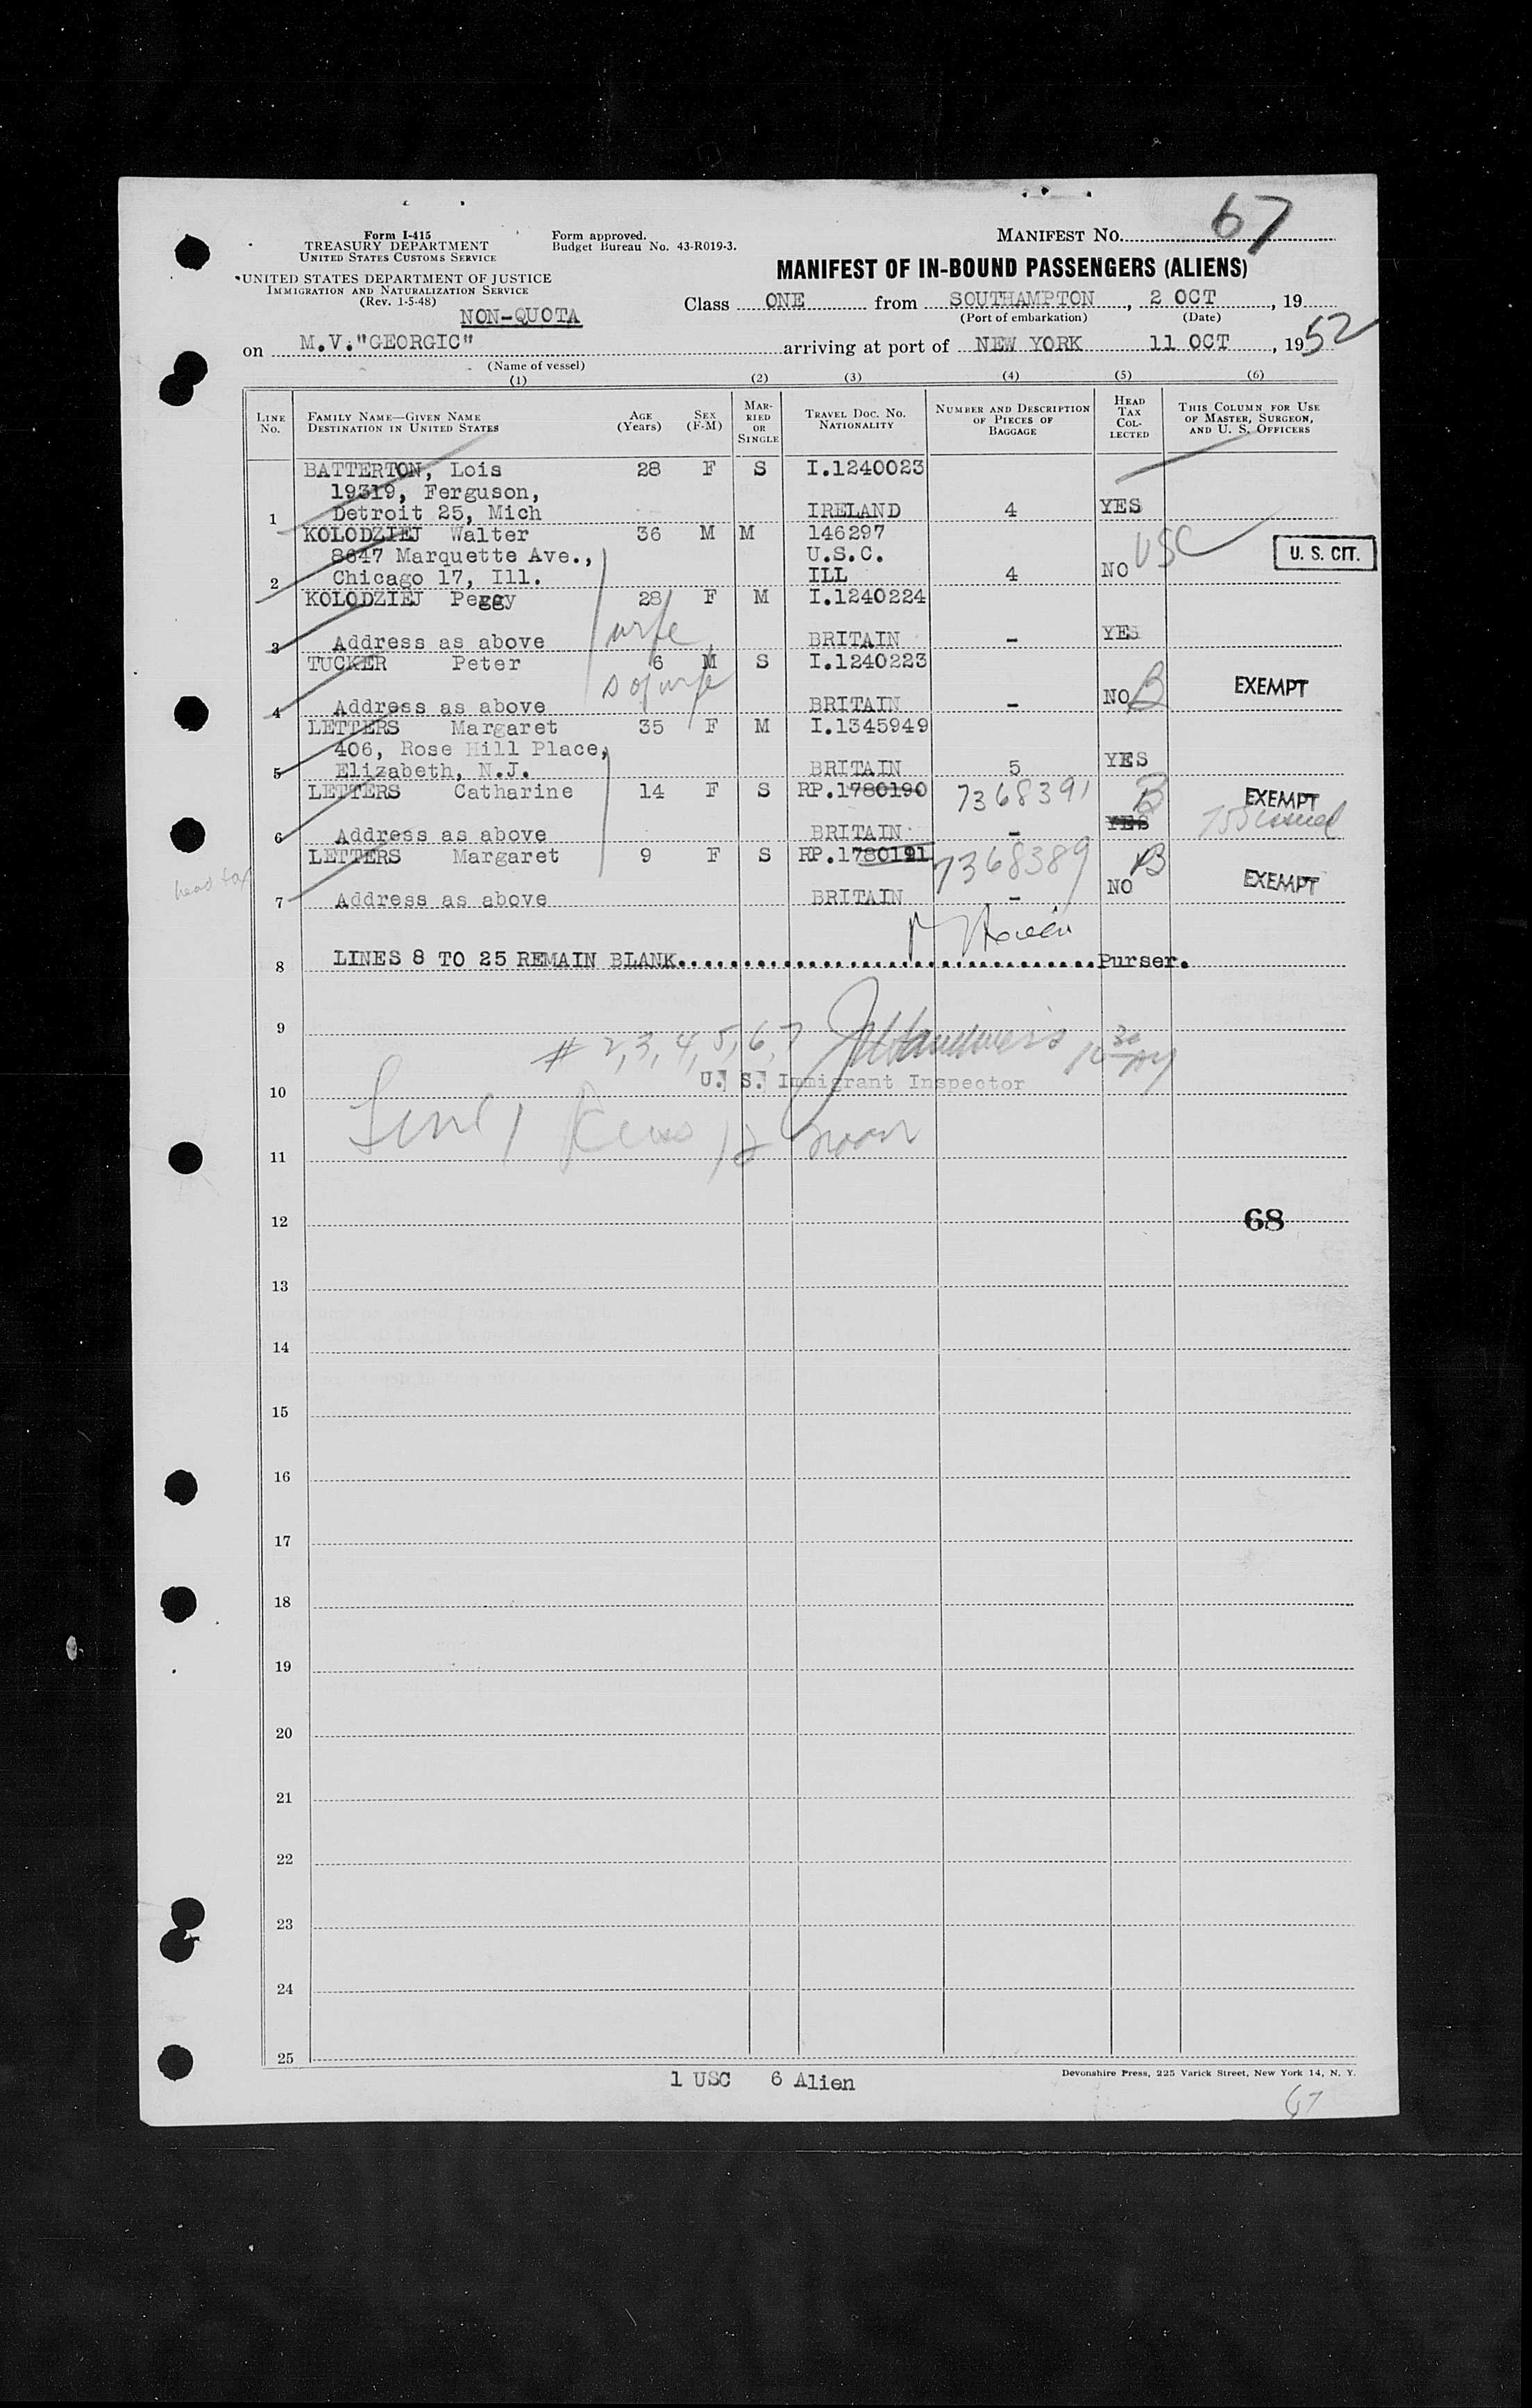 Form I-415
TREASURY DEPARTMENT
UNITED STATES CUSTOMS SERVICE
UNITED STATES DEPARTMENT OF JUSTICE
IMMIGRATION AND NATURALIZATION SERVICE
(Rev. 1-5-48)
Form approved.
Budget Bureau No. 43-R019-3.
MANIFEST NO. 67
MANIFEST OF IN-BOUND PASSENGERS (ALIENS)
NON-QUOTA
Class ONE from SOUTHAMPTON, 2 OCT, 19
(Port of embarkation) (Date)
on M.V."GEORGIC" arriving at port of NEW YORK 11 OCT, 1952
(Name of vessel)
(1) (2) (3) (4) (5) (6)
LINE No. FAMILY NAME—GIVEN NAME DESTINATION IN UNITED STATES AGE (Years) SEX (F-M) MARRIED OR SINGLE TRAVEL DOC. NO. NATIONALITY NUMBER AND DESCRIPTION OF PIECES OF BAGGAGE HEAD TAX COLLECTED THIS COLUMN FOR USE OF MASTER, SURGEON, AND U. S. OFFICERS
BATTERTON, Lois 28 F S I.1240023
19319, Ferguson,
1 Detroit 25, Mich IRELAND 4 YES
KOLODZIEJ Walter 36 M M 146297
8647 Marquette Ave., U.S.C. USC U. S. CIT.
2 Chicago 17, Ill. ILL 4 NO
KOLODZIEJ Peggy 28 F M I.1240224
wife
3 Address as above BRITAIN - YES
TUCKER Peter 6 M S I.1240223
s of wife
4 Address as above BRITAIN - NO B EXEMPT
LETTERS Margaret 35 F M I.1345949
406, Rose Hill Place,
5 Elizabeth, N.J. BRITAIN 5 YES
LETTERS Catharine 14 F S RP.1780190 7368391 B EXEMPT
6 Address as above BRITAIN - YES
LETTERS Margaret 9 F S RP.1780191 7368389 B
head tax
7 Address as above BRITAIN - NO EXEMPT
8 LINES 8 TO 25 REMAIN BLANK. Purser.
9
# 2,3,4,5,6,7 10 30 AM
U. S. Immigrant Inspector
10
Line 1 12 noon
11
12 68
13
14
15
16
17
18
19
20
21
22
23
24
25
1 USC 6 Alien
Devonshire Press, 225 Varick Street, New York 14, N. Y.
67